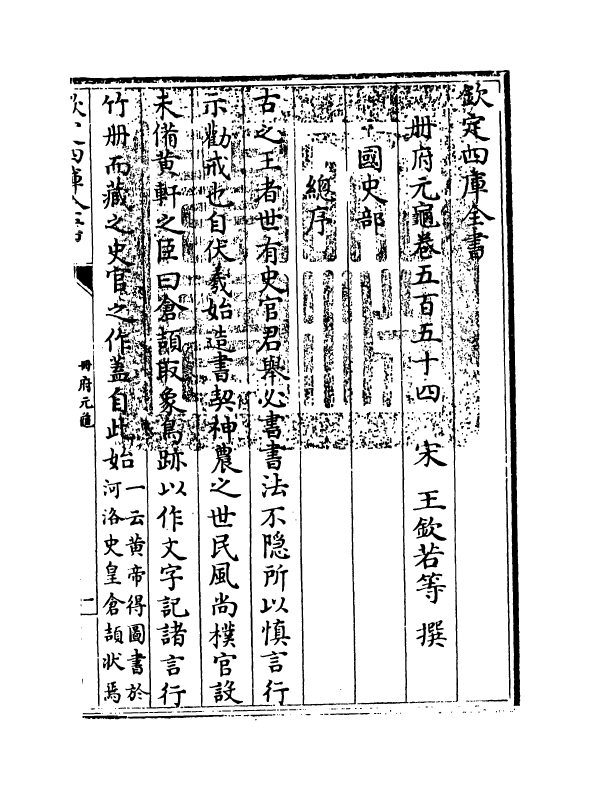 欽定四庫全書
冊府元龜卷五百五十四　宋　王欽若等　撰
國史部
總序
古之王者世有史官君舉必書書法不隱所以慎言行
示勸戒也自伏羲始造書契神農之世民風尚樸官設
未備黃軒之臣曰倉頡取象鳥跡以作文字記諸言行
竹册而藏之史官之作蓋自此始
一云黃帝得圖書於
河洛史皇倉頡狀焉
冊府元龜
一